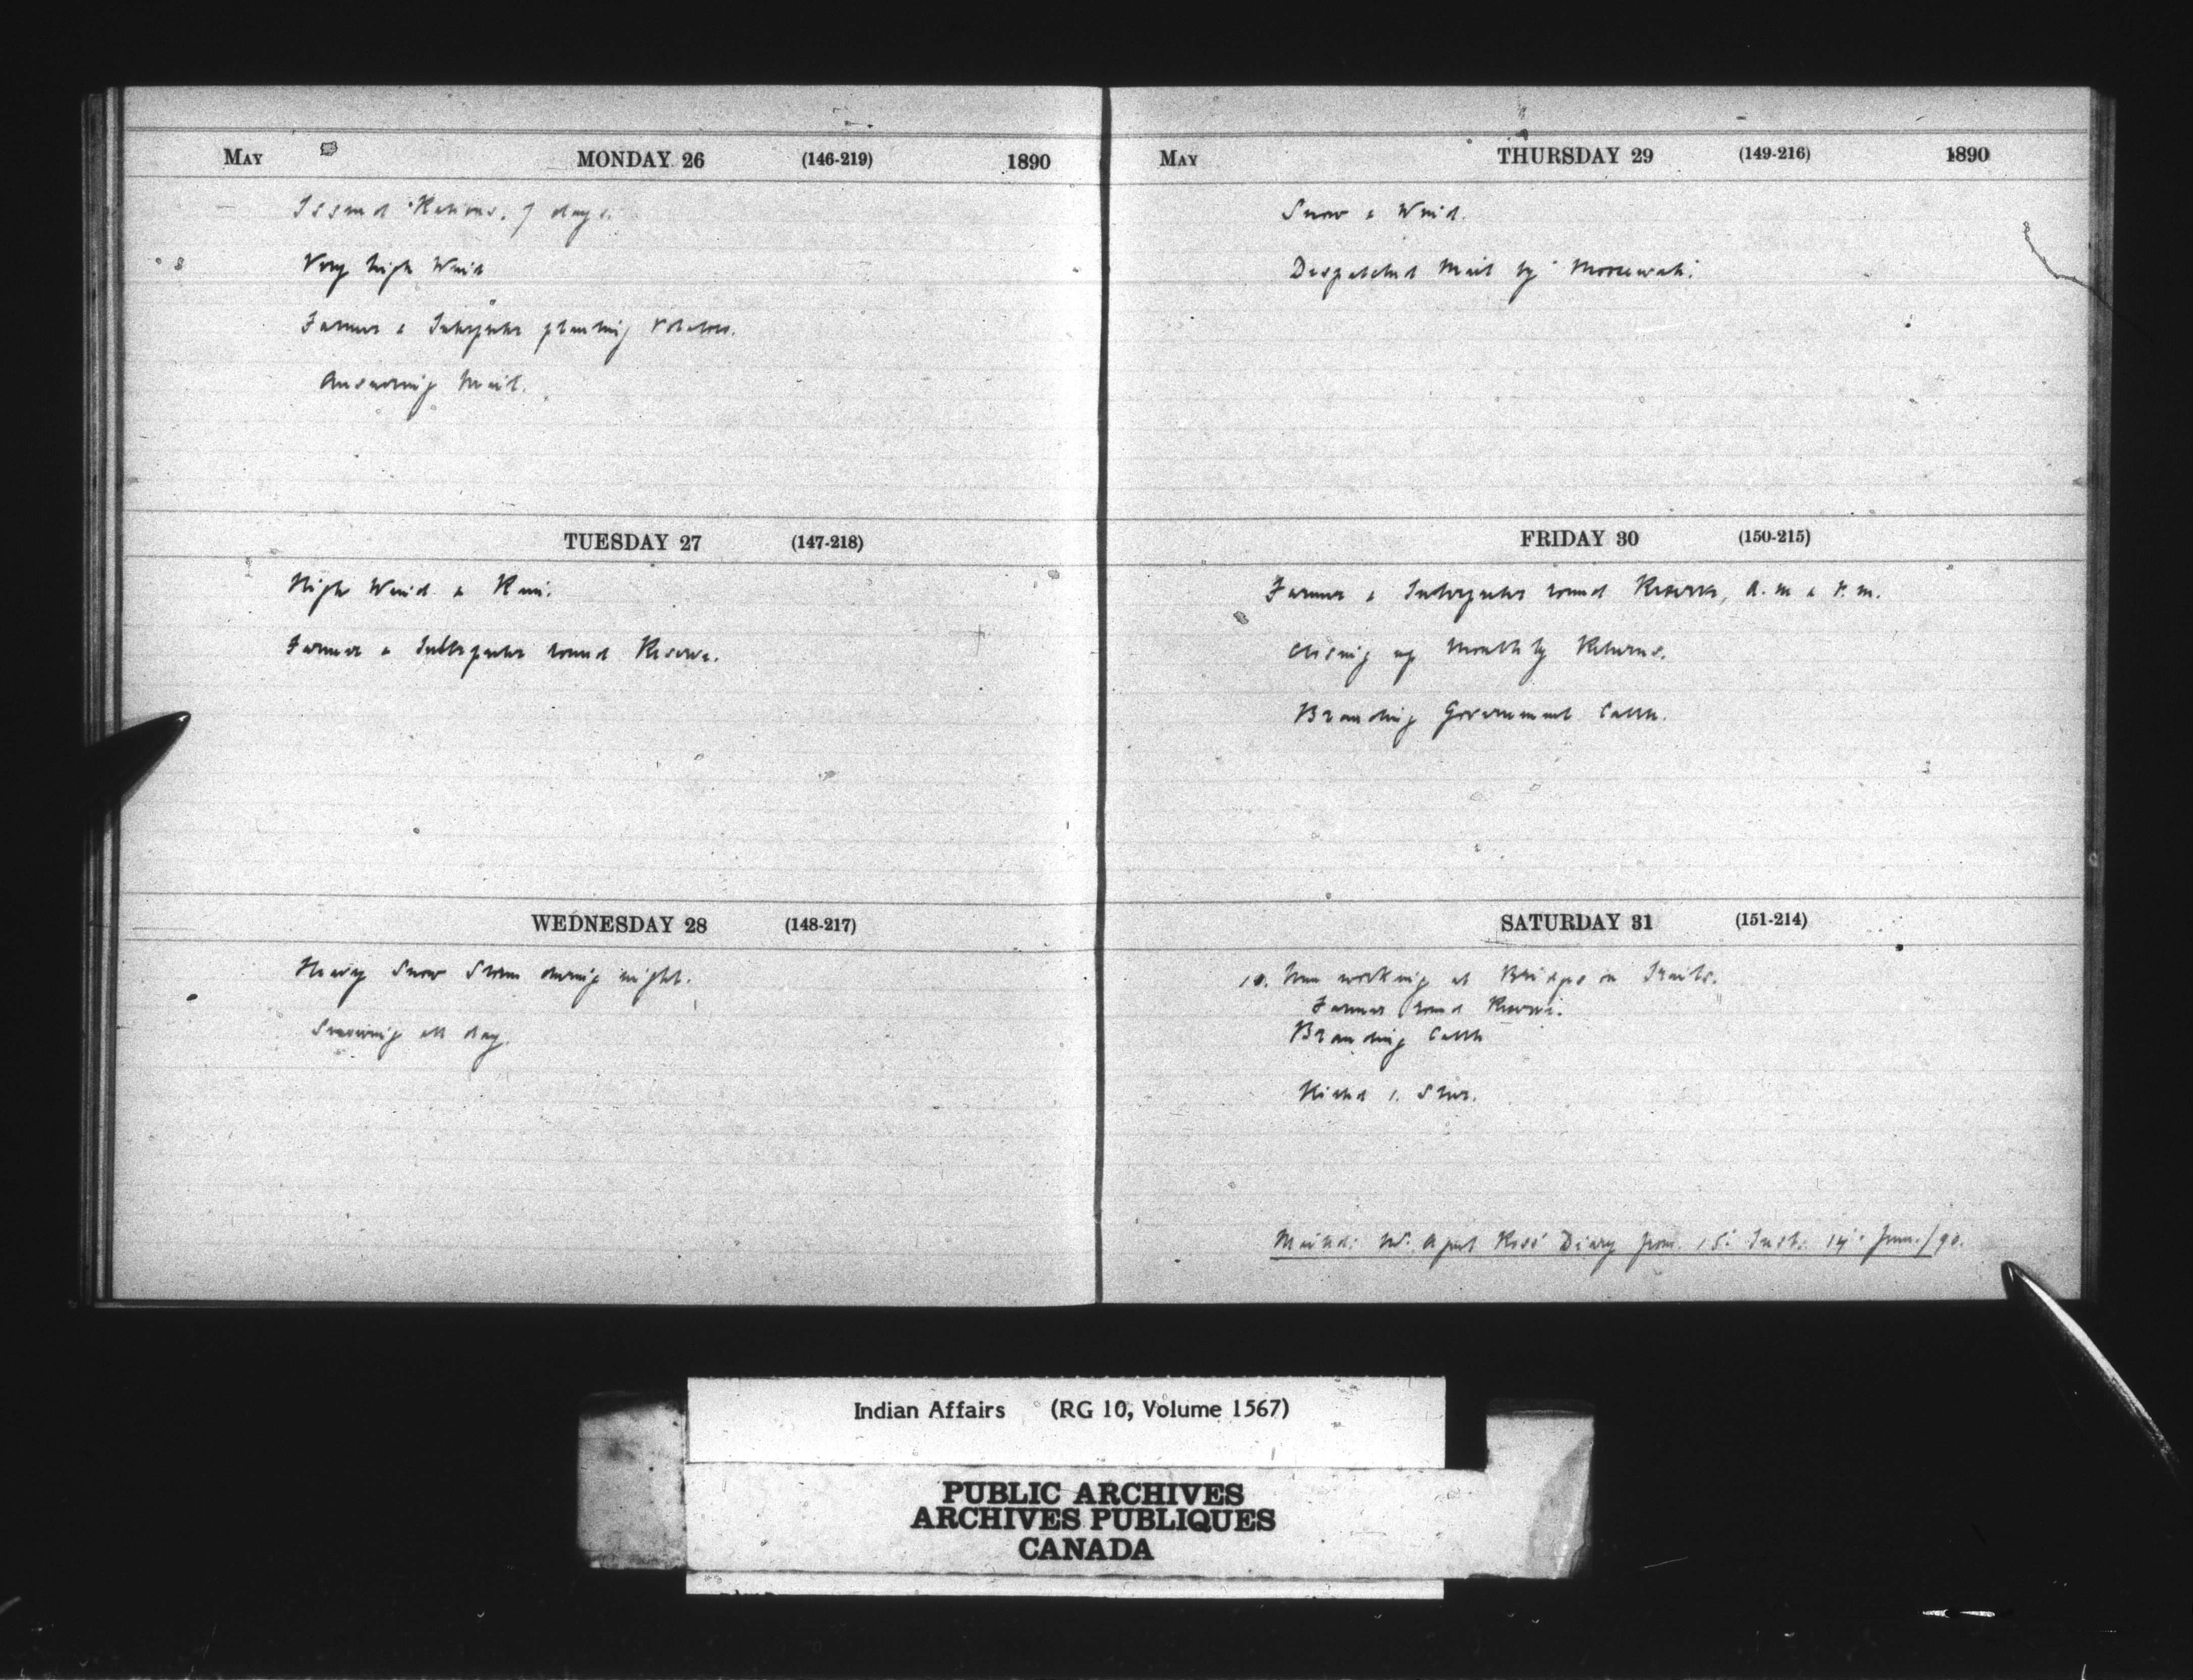 May MONDAY 26 (146-219) 1890
Issued Rations. 7 days.
Very high Wind
Farmer & Interpreter planting Potatoes.
Answering Mail.
TUESDAY 27 (147-218)
High Wind & Rain.
Farmer & Interpreter round Reserve.
WEDNESDAY 28 (148-217)
Heavy Snow Storm during night.
Snowing all day.
May THURSDAY 29 (149-216) 1890
Snow & Wind.
Despatched Mail by
FRIDAY 30 (150-215)
Farmer & Interpreter round Reserve, A.M & P.M.
Closing up Monthly Returns.
Branding Government Cattle.
SATURDAY 31 (151-214)
10. Men working at Bridges on Trails.
Farmer round Reserve.
Branding Cattle
Killed 1. Steer.
Mailed: Diary from 15: Inst: 14: June./90.
Indian Affairs (RG 10, Volume 1567)
PUBLIC ARCHIVES
ARCHIVES PUBLIQUES
CANADA